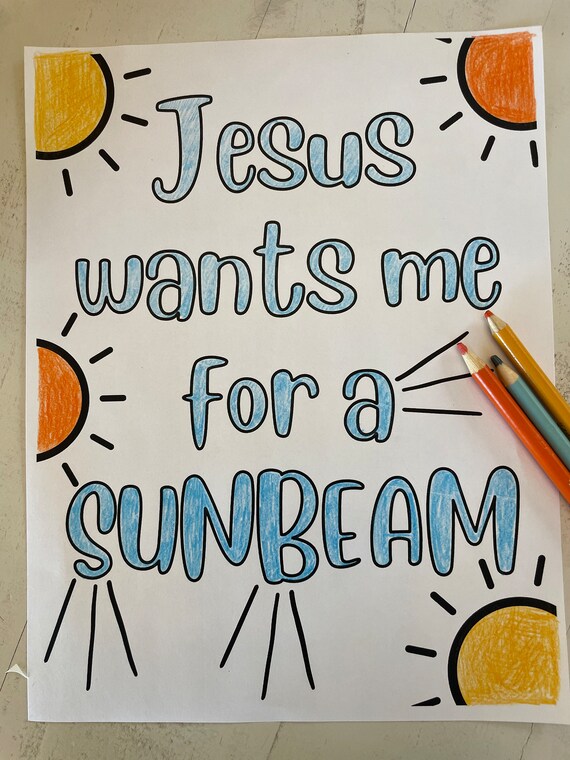 Jesus
wants me
for a
SUNBEAM